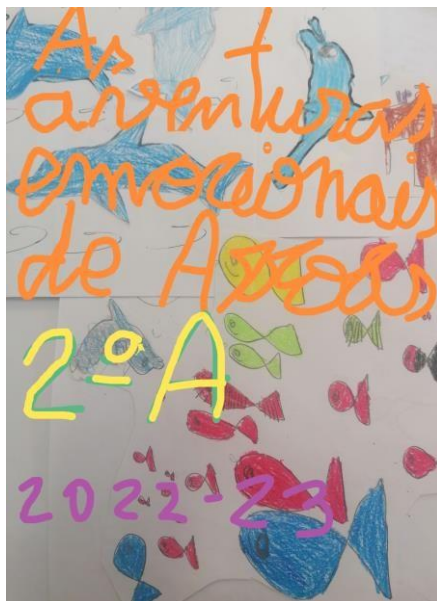 As
aventuras
emocionais
de
2º A
2022-23